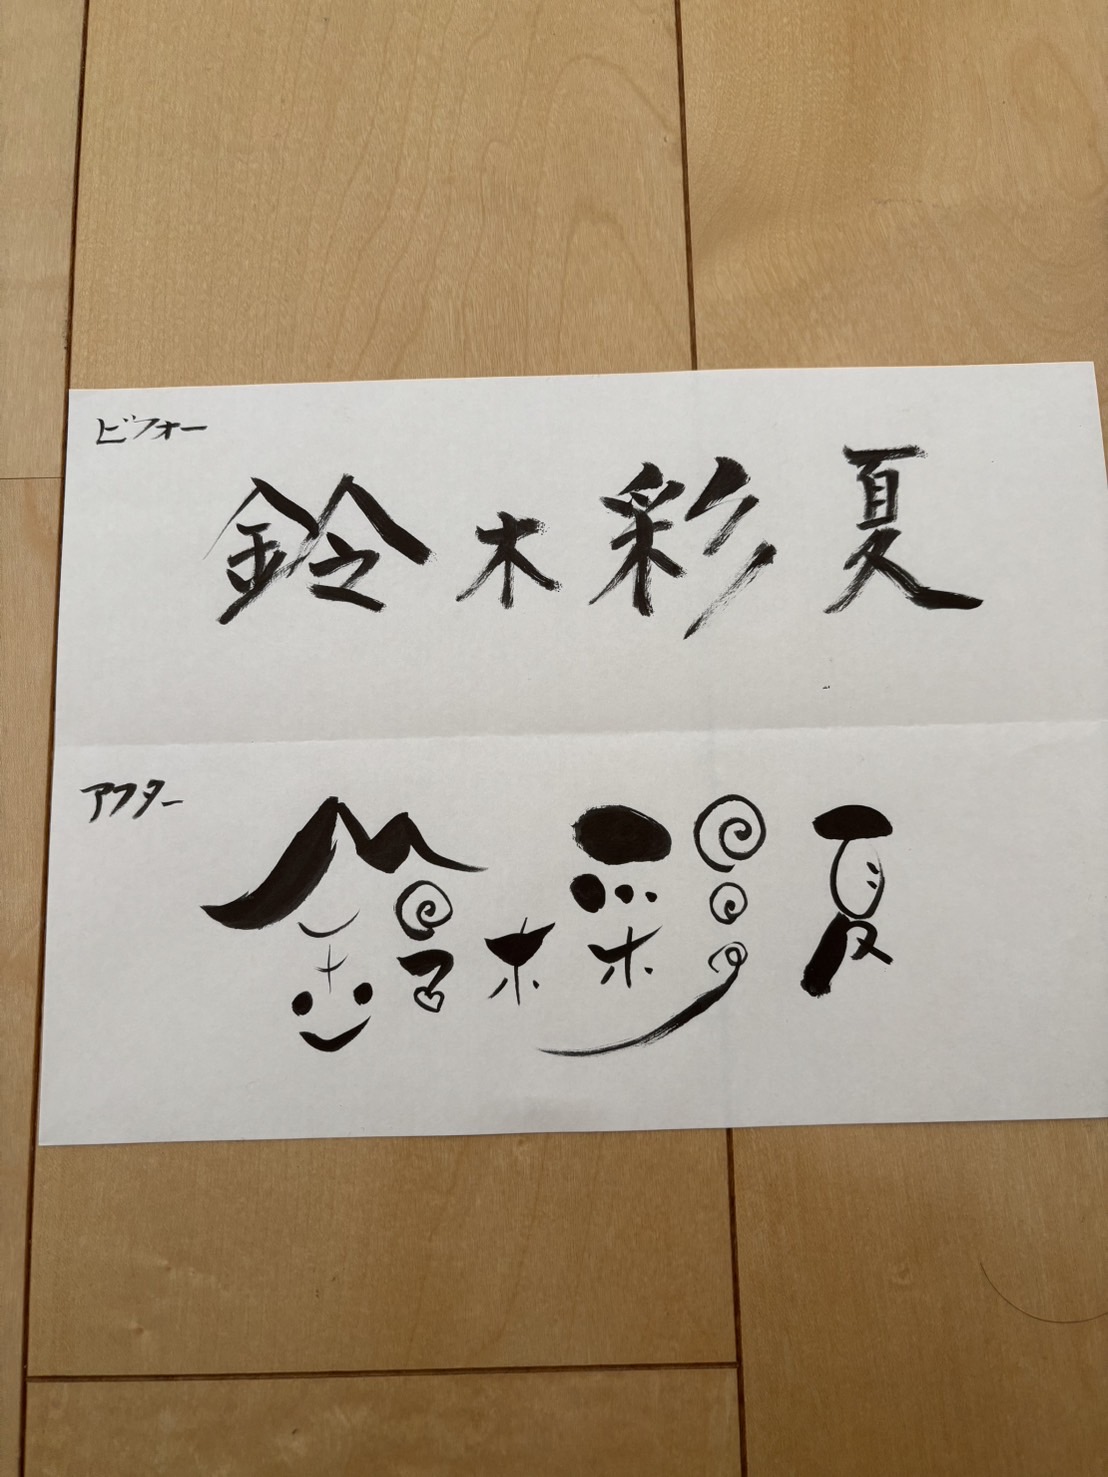 ビフォー
鈴木彩夏
アフター
鈴木彩夏